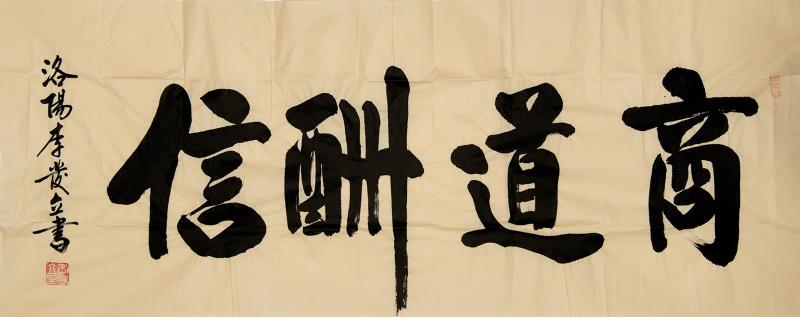 商道酬信
洛陽李發立書